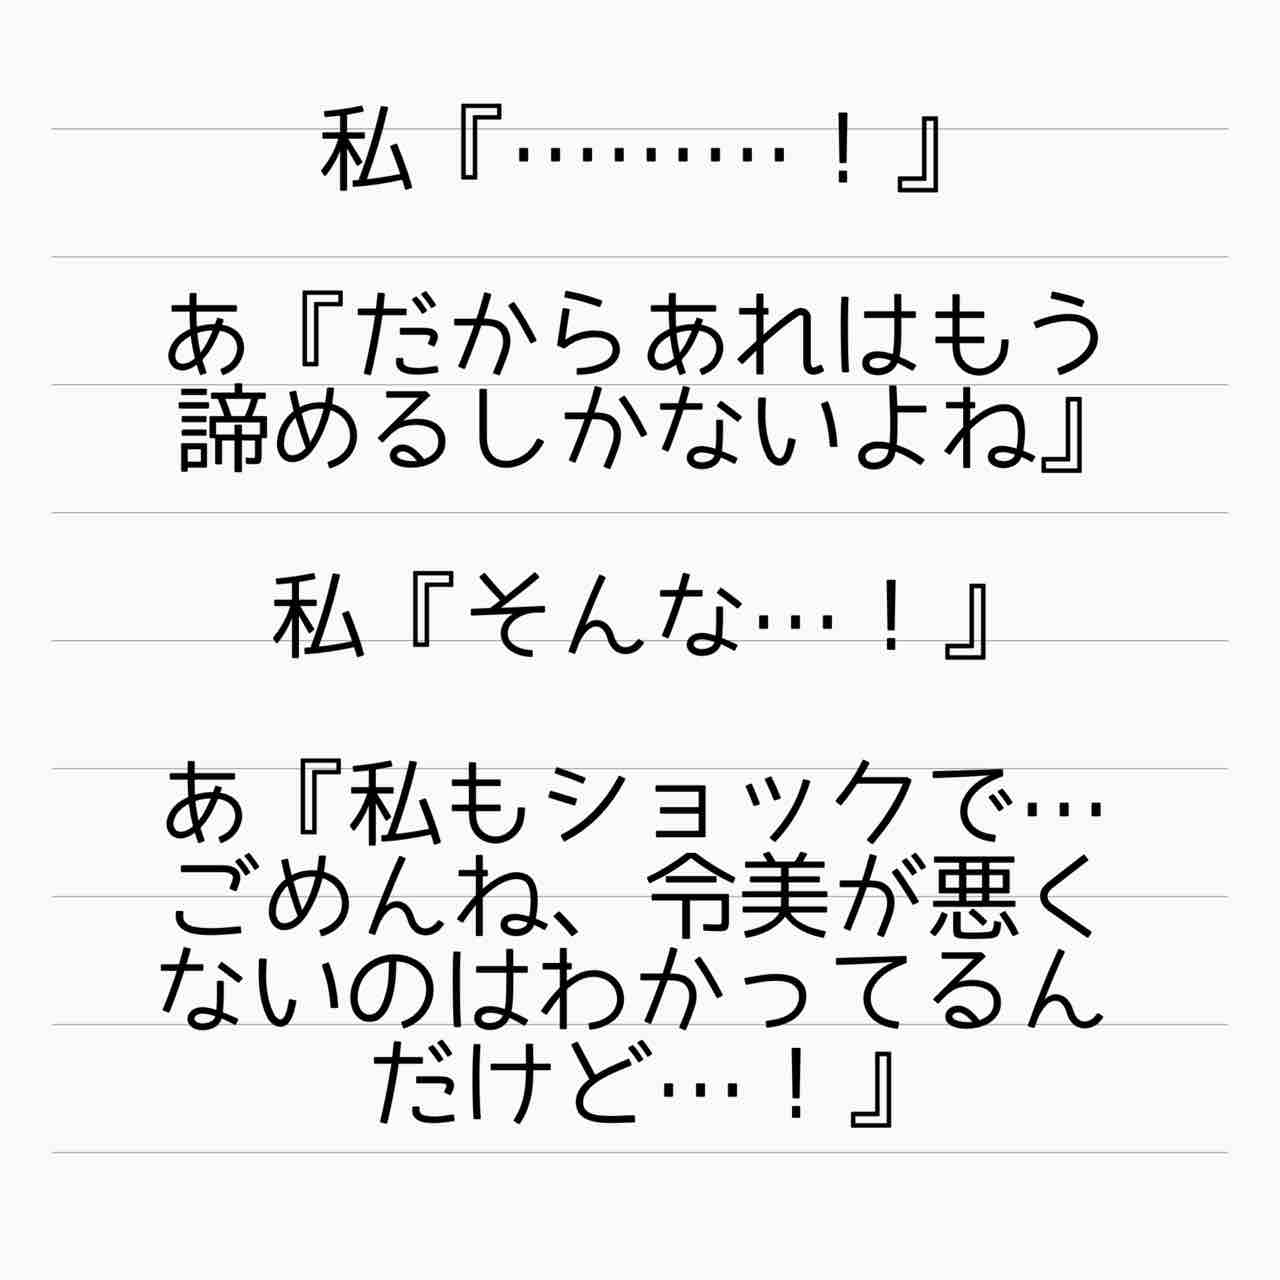 私『………！』
あ『だからあれはもう
諦めるしかないよね』
私『そんな…！』
あ『私もショックで…
ごめんね、令美が悪く
ないのはわかってるん
だけど…！』